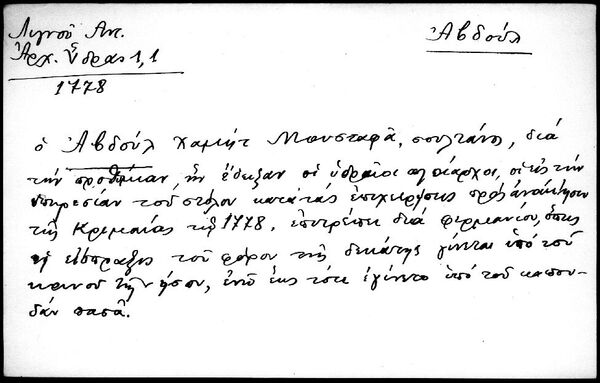 Λιγνοῦ Αντ.
Ἀρχ. Ὕδρας 1,1
1778
Ἀβδούλ
ὁ Ἀβδούλ Χαμήτ Μουσταφᾶ, σουλτάνος, διά
τήν προθυμίαν, ἥν ἔδειξαν οἱ ὑδραῖοι πλοίαρχοι, εἰς τήν
ὑπηρεσίαν τοῦ στόλου κατά τάς ἐπιχειρήσεις πρός ἀνάκτησιν
τῆς Κριμαίας τῷ 1778, ἐπιτρέπει διά φιρμανίου, ὅπως
ἡ εἴσπραξις τοῦ φόρου τῆς δεκάτης γίνεται ὑπό τοῦ
κοινοῦ τῆς νήσου, ἐνῶ ἕως τότε ἐγίνετο ὑπό τοῦ καπου-
δάν πασᾶ.